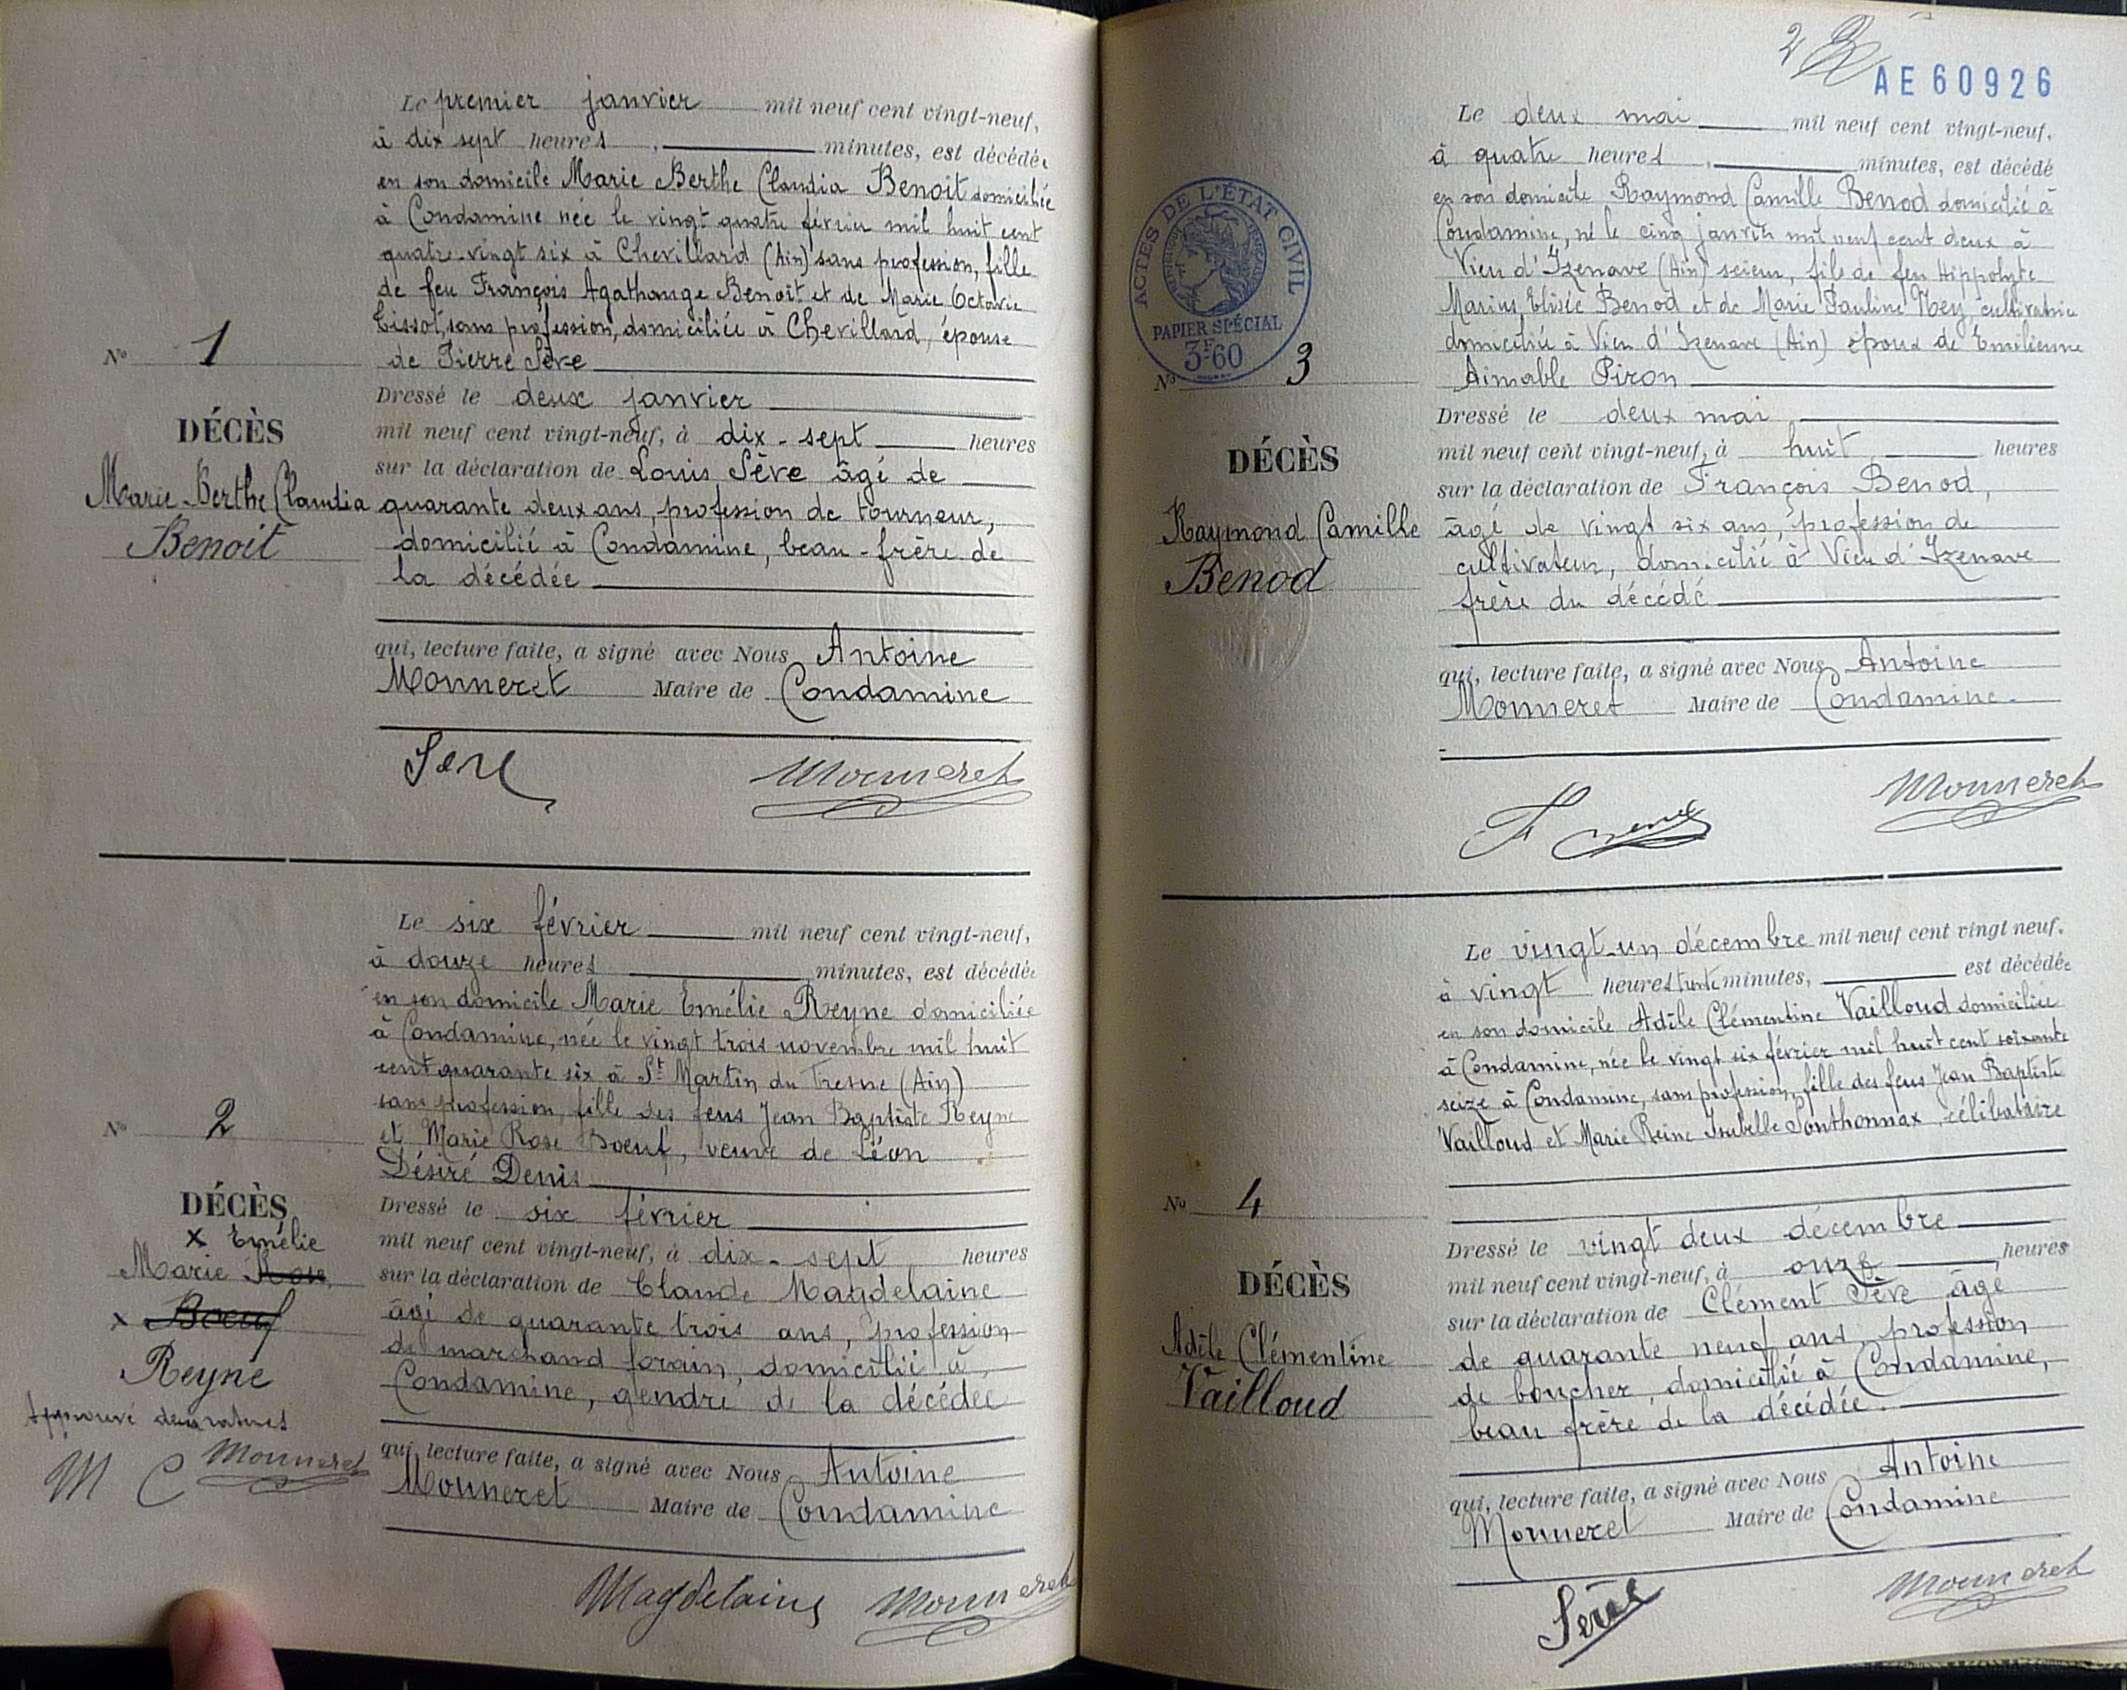 Le premier janvier mil neuf cent vingt-neuf,
à dix sept heures, minutes, est décédée
en son domicile Marie Berthe Claudia Benoit domiciliée
à Condamine née le vingt quatre février mil huit cent
quatre-vingt six à Chevillard (Ain) sans profession, fille
de feu François Agathange Benoît et de Marie Octavie
Tissot, sans profession, domiciliée à Chevillard, épouse
de Pierre Sève
No 1
DÉCÈS
Marie-Berthe Claudia
Benoit
Dressé le deux janvier
mil neuf cent vingt-neuf, à dix-sept heures
sur la déclaration de Louis Sève âgé de
quarante deux ans, profession de tourneur,
domicilié à Condamine, beau-frère de
la décédée
qui, lecture faite, a signé avec Nous Antoine
Monneret Maire de Condamine
Seve Monneret
Le six février mil neuf cent vingt-neuf,
à douze heures minutes, est décédée
en son domicile Marie Emélie Reyne domiciliée
à Condamine, née le vingt trois novembre mil huit
cent quarante six à St Martin du Fresne (Ain)
sans profession, fille des feus Jean Baptiste Reyne
et Marie Rose Boeuf, veuve de Léon
Désiré Denis
No 2
DÉCÈS
x Emélie
Marie Rose
x Boeuf
Reyne
Approuvé deux ratures
M C Monneret
Dressé le six février
mil neuf cent vingt-neuf, à dix-sept heures
sur la déclaration de Claude Magdelaine
âgé de quarante trois ans, profession
de marchand forain, domicilié à
Condamine, gendre de la décédée
qui, lecture faite, a signé avec Nous Antoine
Monneret Maire de Condamine
Magdelaine Monneret
2
AE60926
Le deux mai mil neuf cent vingt-neuf,
à quatre heures, minutes, est décédé
en son domicile Raymond Camille Benod domicilié à
Condamine, né le cinq janvier mil neuf cent deux à
Vieu d'Izenave (Ain) scieur, fils de feu Hippolyte
Marius Elisée Benod et de Marie Pauline Ney, cultivatrice
domiciliée à Vieu d'Izenave (Ain) époux de Emélienne
Aimable Piron
ACTES DE L'ÉTAT CIVIL
PAPIER SPÉCIAL
3F60
No 3
DÉCÈS
Raymond Camille
Benod
Dressé le deux mai
mil neuf cent vingt-neuf, à huit heures
sur la déclaration de François Benod,
âgé de vingt six ans, profession de
cultivateur, domicilié à Vieu d'Izenave
frère du décédé
qui, lecture faite, a signé avec Nous Antoine
Monneret Maire de Condamine.
F Monneret
Le vingt-un décembre mil neuf cent vingt neuf.
à vingt heures trente minutes, est décédée
en son domicile Adèle Clémentine Vailloud domiciliée
à Condamine, née le vingt six février mil huit cent soixante
seize à Condamine, sans profession, fille des feus Jean Baptiste
Vailloud et Marie Reine Isabelle Sonthonnax, célibataire
No 4
DÉCÈS
Adèle Clémentine
Vailloud
Dressé le vingt deux décembre
mil neuf cent vingt-neuf, à onze heures
sur la déclaration de Clément Sève âgé
de quarante neuf ans, profession
de boucher, domicilié à Condamine,
beau frère de la décédée.
qui, lecture faite, a signé avec Nous Antoine
Monneret Maire de Condamine
Seve Monneret